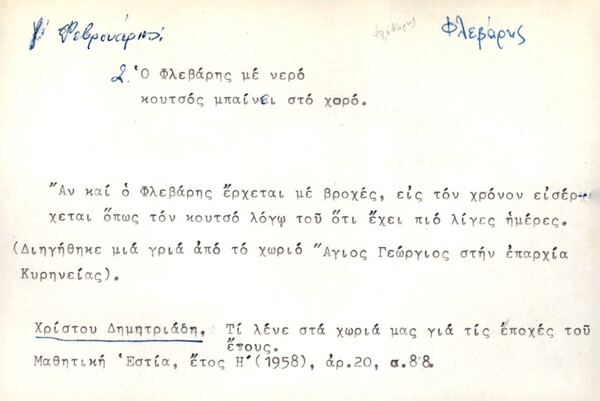 γ' Φεβρουάριος Φλεβάρης
2. Ὁ Φλεβάρης μέ νερό
κουτσός μπαίνει στό χορό.
Ἄν καί ὁ Φλεβάρης ἔρχεται μέ βροχές, εἰς τόν χρόνον εἰσέρ-
χεται ὅπως τόν κουτσό λόγῳ τοῦ ὅτι ἔχει πιό λίγες ἡμέρες.
(Διηγήθηκε μιά γριά ἀπό τό χωριό Ἅγιος Γεώργιος στήν ἐπαρχία
Κυρηνείας).
Χρίστου Δημητριάδη, Τί λένε στά χωριά μας γιά τίς ἐποχές τοῦ
ἔτους.
Μαθητική Ἑστία, ἔτος Η' (1958), ἀρ.20, σ.88.